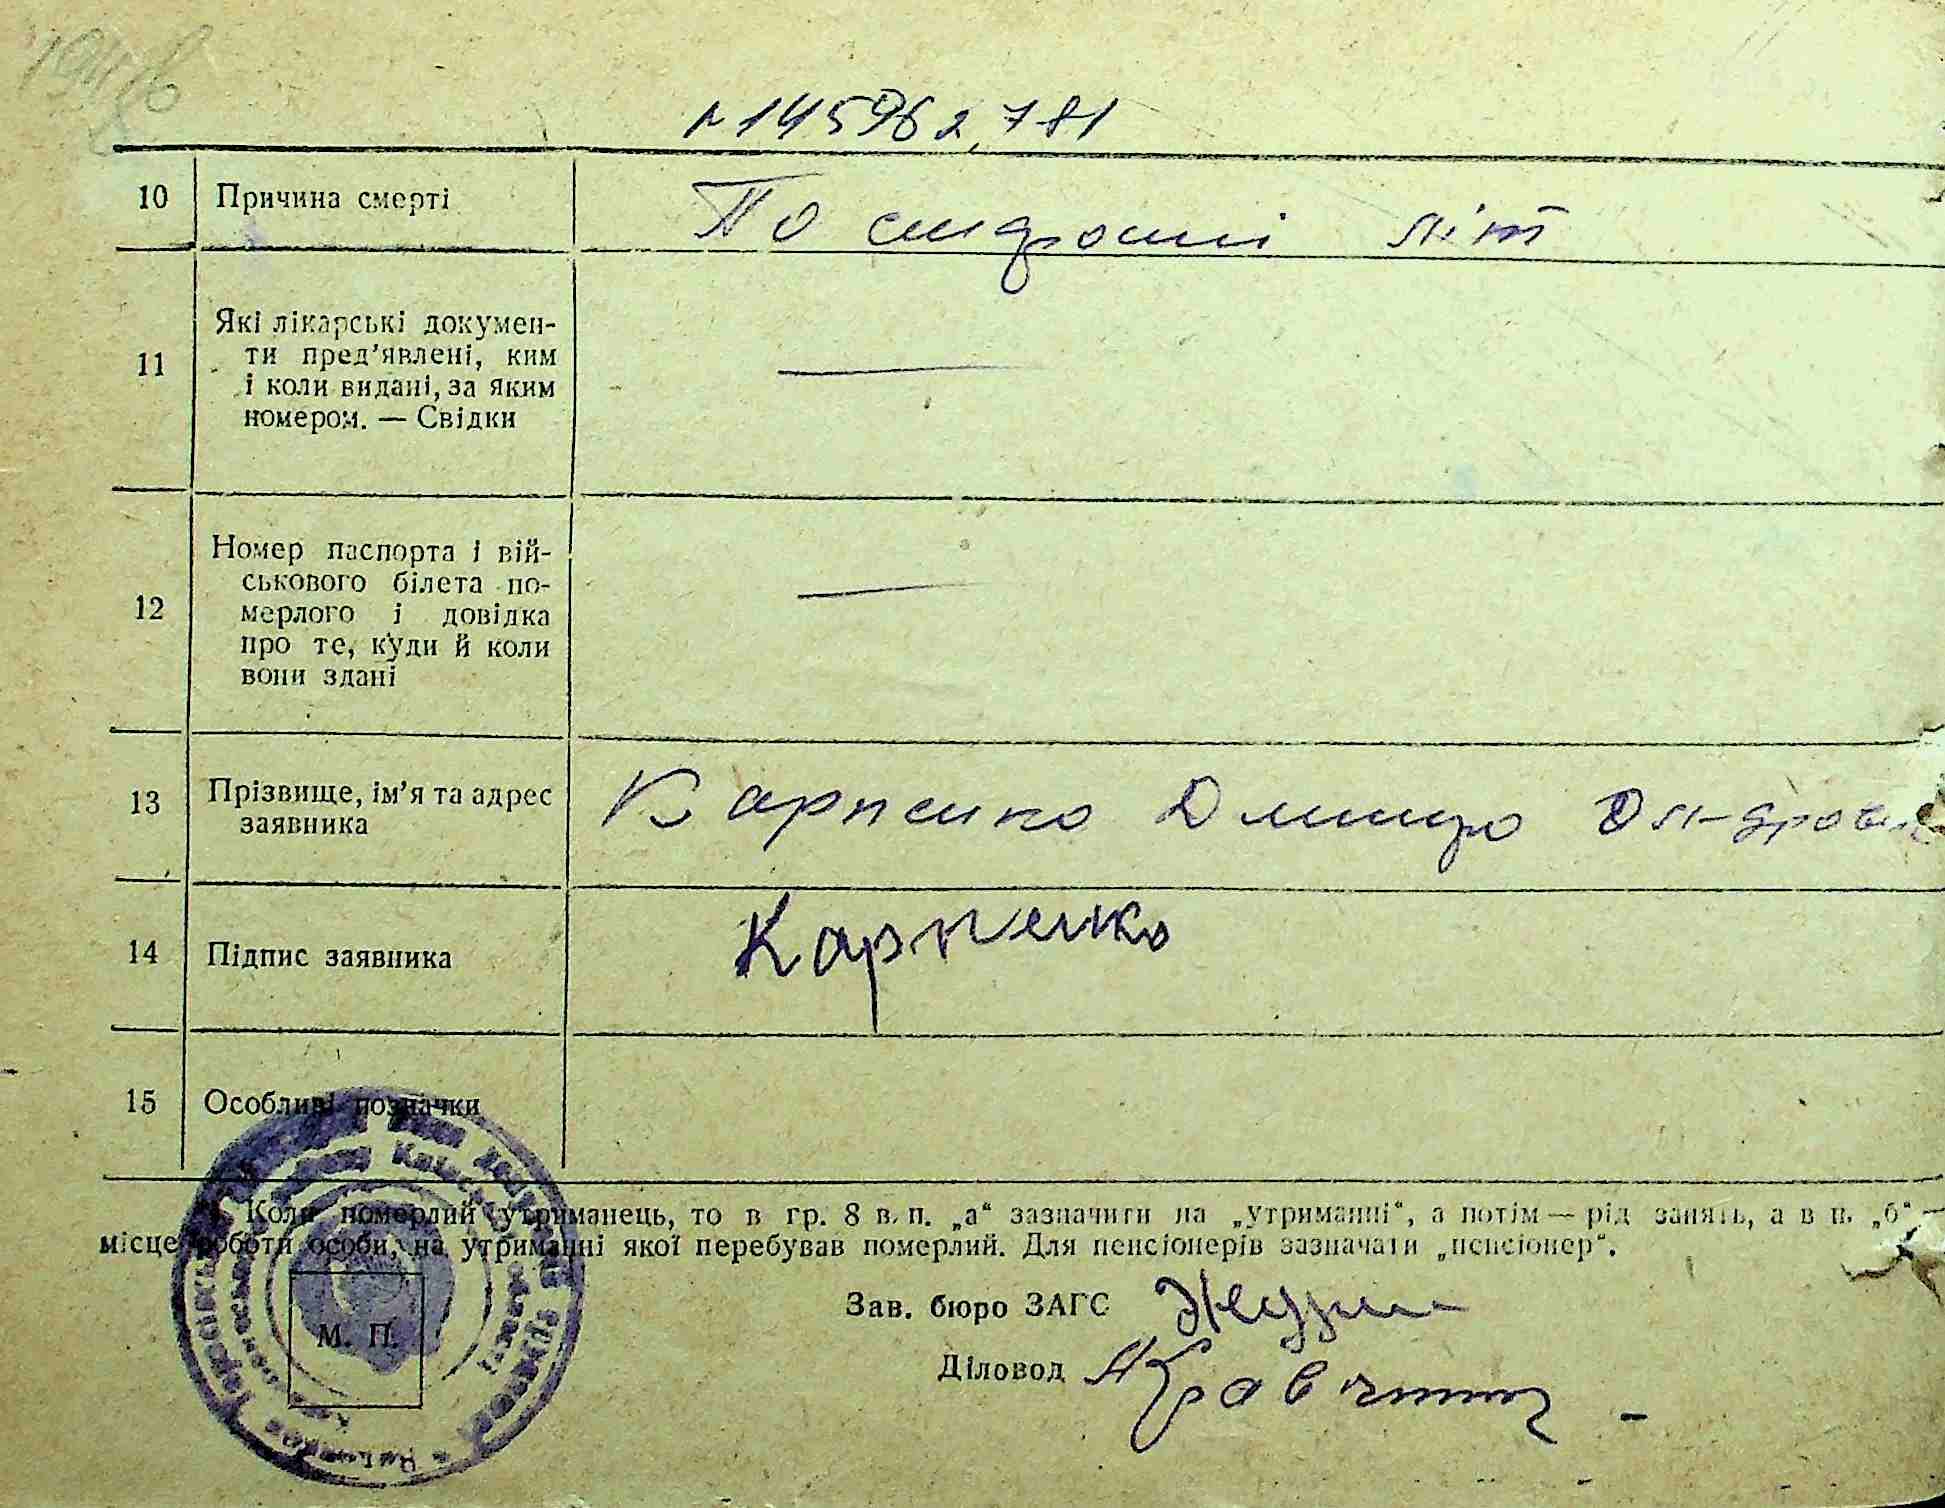 10 Причина смерті По старості літ
11 Які лікарські докумен-
ти пред'явлені, ким
і коли видані, за яким
номером. — Свідки —
12 Номер паспорта і вій-
ськового білета по-
мерлого і довідка
про те, куди й коли
вони здані —
13 Прізвище, ім'я та адрес
заявника Карпенко Дмитро
14 Підпис заявника Карпенко
15 Особливі позначки
1. Коли померлий утриманець, то в гр. 8 в. п. „а“ зазначити на „утриманні“, а потім — рід занять, а в п. „б“ —
місце роботи особи, на утриманні якої перебував померлий. Для пенсіонерів зазначати „пенсіонер“.
Зав. бюро ЗАГС
М. П.
Діловод